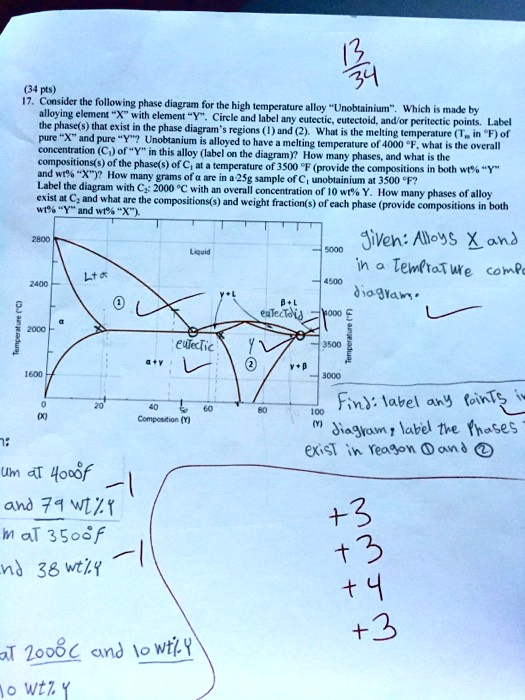 13
34
(34 pts)
17. Consider the following phase diagram for the high temperature alloy "Unobtainium". Which is made by
alloying element "X" with element "Y". Circle and label any eutectic, eutectoid, and/or peritectic points. Label
the phase(s) that exist in the phase diagram's regions (1) and (2). What is the melting temperature (Tm in °F) of
pure "X" and pure "Y"? Unobtanium is alloyed to have a melting temperature of 4000 °F, what is the overall
concentration (C1) of "Y" in this alloy (label on the diagram)? How many phases, and what is the
compositions(s) of the phase(s) of C1 at a temperature of 3500 °F (provide the compositions in both wt% "Y"
and wt% "X")? How many grams of α are in a 25g sample of C1 unobtainium at 3500 °F?
Label the diagram with C2: 2000 °C with an overall concentration of 10 wt% Y. How many phases of alloy
exist at C2 and what are the compositions(s) and weight fraction(s) of each phase (provide compositions in both
wt% "Y" and wt% "X").
2800
2400
2000
1600
Temperature (°C)
Liquid
L+α
1
α
γ+L
β+L
eutectoid
eutectic
γ
2
α+γ
γ+β
5000
4500
4000
3500
3000
Temperature (°F)
0
20
40
50
60
80
100
(X)
Composition (Y)
(Y)
Given: Alloys X and
in a Temprature comp
diagram.
Find: label any Points i
diagram, label the Phases
exist in reason ① and ②
um at 4000°f
-1
and 79 wt%Y
m at 3500°f
nd 38 wt%Y
-1
+3
+3
+4
+3
at 2000°C and 10 wt%Y
10 wt% Y